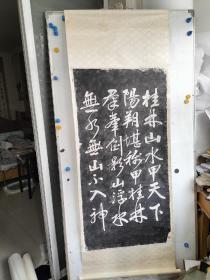 桂林山水甲天下
陽朔堪称甲桂林
群峯倒影山浮水
無水無山不入神